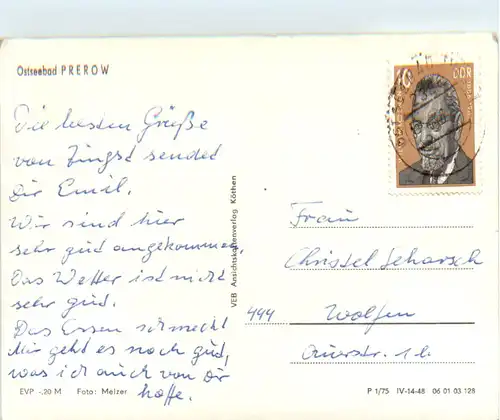 Ostseebad PREROW
Die besten Grüße
von Zingst sendet
Dir Emil.
Wir sind hier
sehr gut angekommen.
Das Wetter ist nicht
sehr gut.
Das Essen schmeckt
Mir geht es noch gut,
was ich auch von Dir
hoffe.
EVP -,20 M Foto: Melzer
VEB Ansichtskartenverlag Köthen
10 DDR
Frau
Christel
444 Wolfen
P 1/75 IV-14-48 06 01 03 128